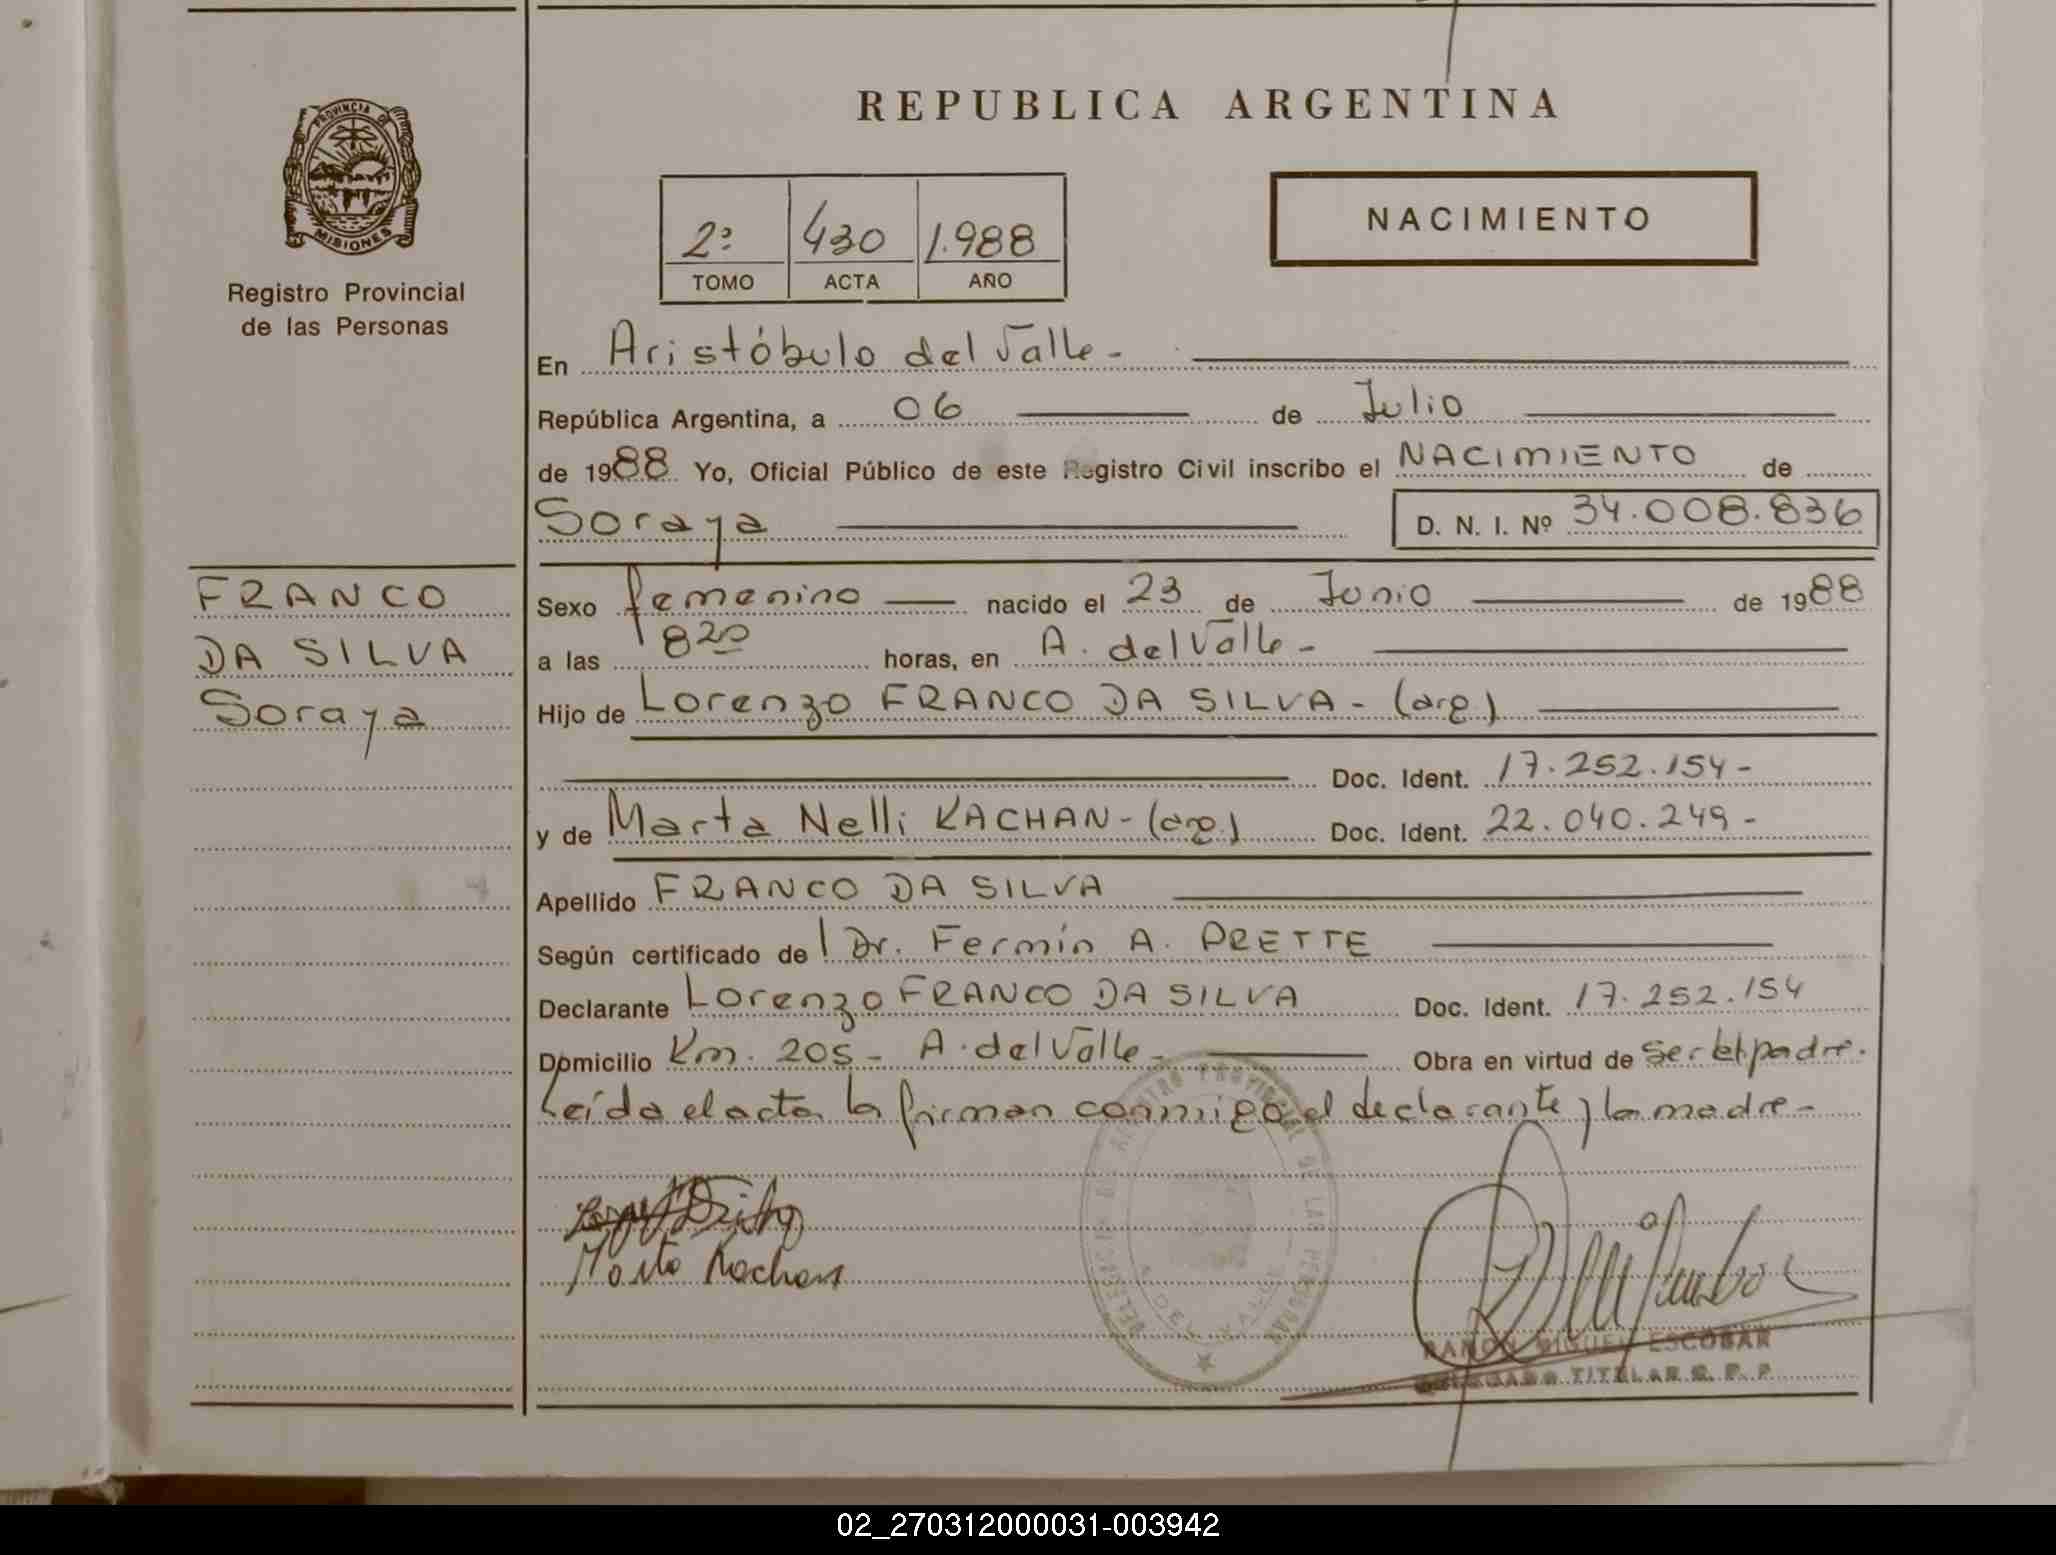 PROVINCIA DE
MISIONES
Registro Provincial
de las Personas
FRANCO
DA SILVA
Soraya
REPUBLICA ARGENTINA
2º 430 1.988
TOMO ACTA AÑO
NACIMIENTO
En Aristóbulo del Valle -
República Argentina, a 06 de Julio
de 1988 Yo, Oficial Público de este Registro Civil inscribo el NACIMIENTO de
Soraya D. N. I. Nº 34.008.836
Sexo femenino nacido el 23 de Junio de 1988
a las 8 20 horas, en A. del Valle -
Hijo de Lorenzo FRANCO DA SILVA - (arg.)
Doc. Ident. 17.252.154 -
y de Marta Nelli KACHAN - (arg.) Doc. Ident. 22.040.249 -
Apellido FRANCO DA SILVA
Según certificado de Dr. Fermín A. PRETTE
Declarante Lorenzo FRANCO DA SILVA Doc. Ident. 17.252.154
Domicilio Km. 205 - A. del Valle - Obra en virtud de ser el padre.
Leída el acta la firman conmigo el declarante y la madre -
Marta Kachan
REGISTRO PROVINCIAL DE LAS PERSONAS
RAMON MIGUEL ESCOBAR
DELEGADO TITULAR R. P. P.
02_270312000031-003942